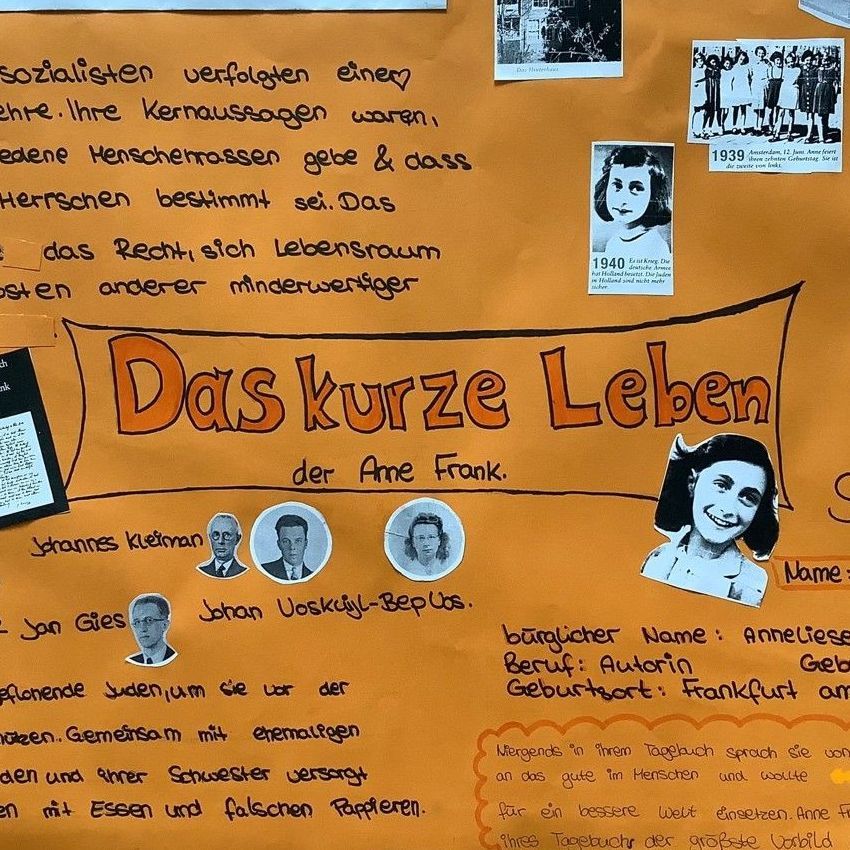 Das Hinterhaus
sozialisten verfolgten einem
ehre. Ihre Kernaussagen waren,
iedene Menschenrassen gebe & dass
Herrschen bestimmt sei. Das
das Recht, sich Lebensraum
osten anderer minderwertiger
1939 Amsterdam, 12. Juni. Anne feiert
ihren zehnten Geburtstag. Sie ist
die zweite von links.
1940 Es ist Krieg. Die
deutsche Armee
hat Holland besetzt. Die Juden
in Holland sind nicht mehr
sicher.
Das kurze Leben
der Anne Frank.
Johannes Kleiman
Jan Gies
Johan Voskuijl-Bep Vos.
geflohende Juden, um sie vor der
hützen. Gemeinsam mit ehemaligen
den und ihrer Schwester versorgt
en mit Essen und falschen Pappieren.
Name:
bürglicher Name: Anneliese
Beruf: Autorin Geb
Geburtsort: Frankfurt am
Niergends in ihrem Tagebuch sprach sie von
an das gute im Menschen und wollte
für ein bessere Welt einsetzen. Anne Fr
ihres Tagebuchs der größste Vorbild